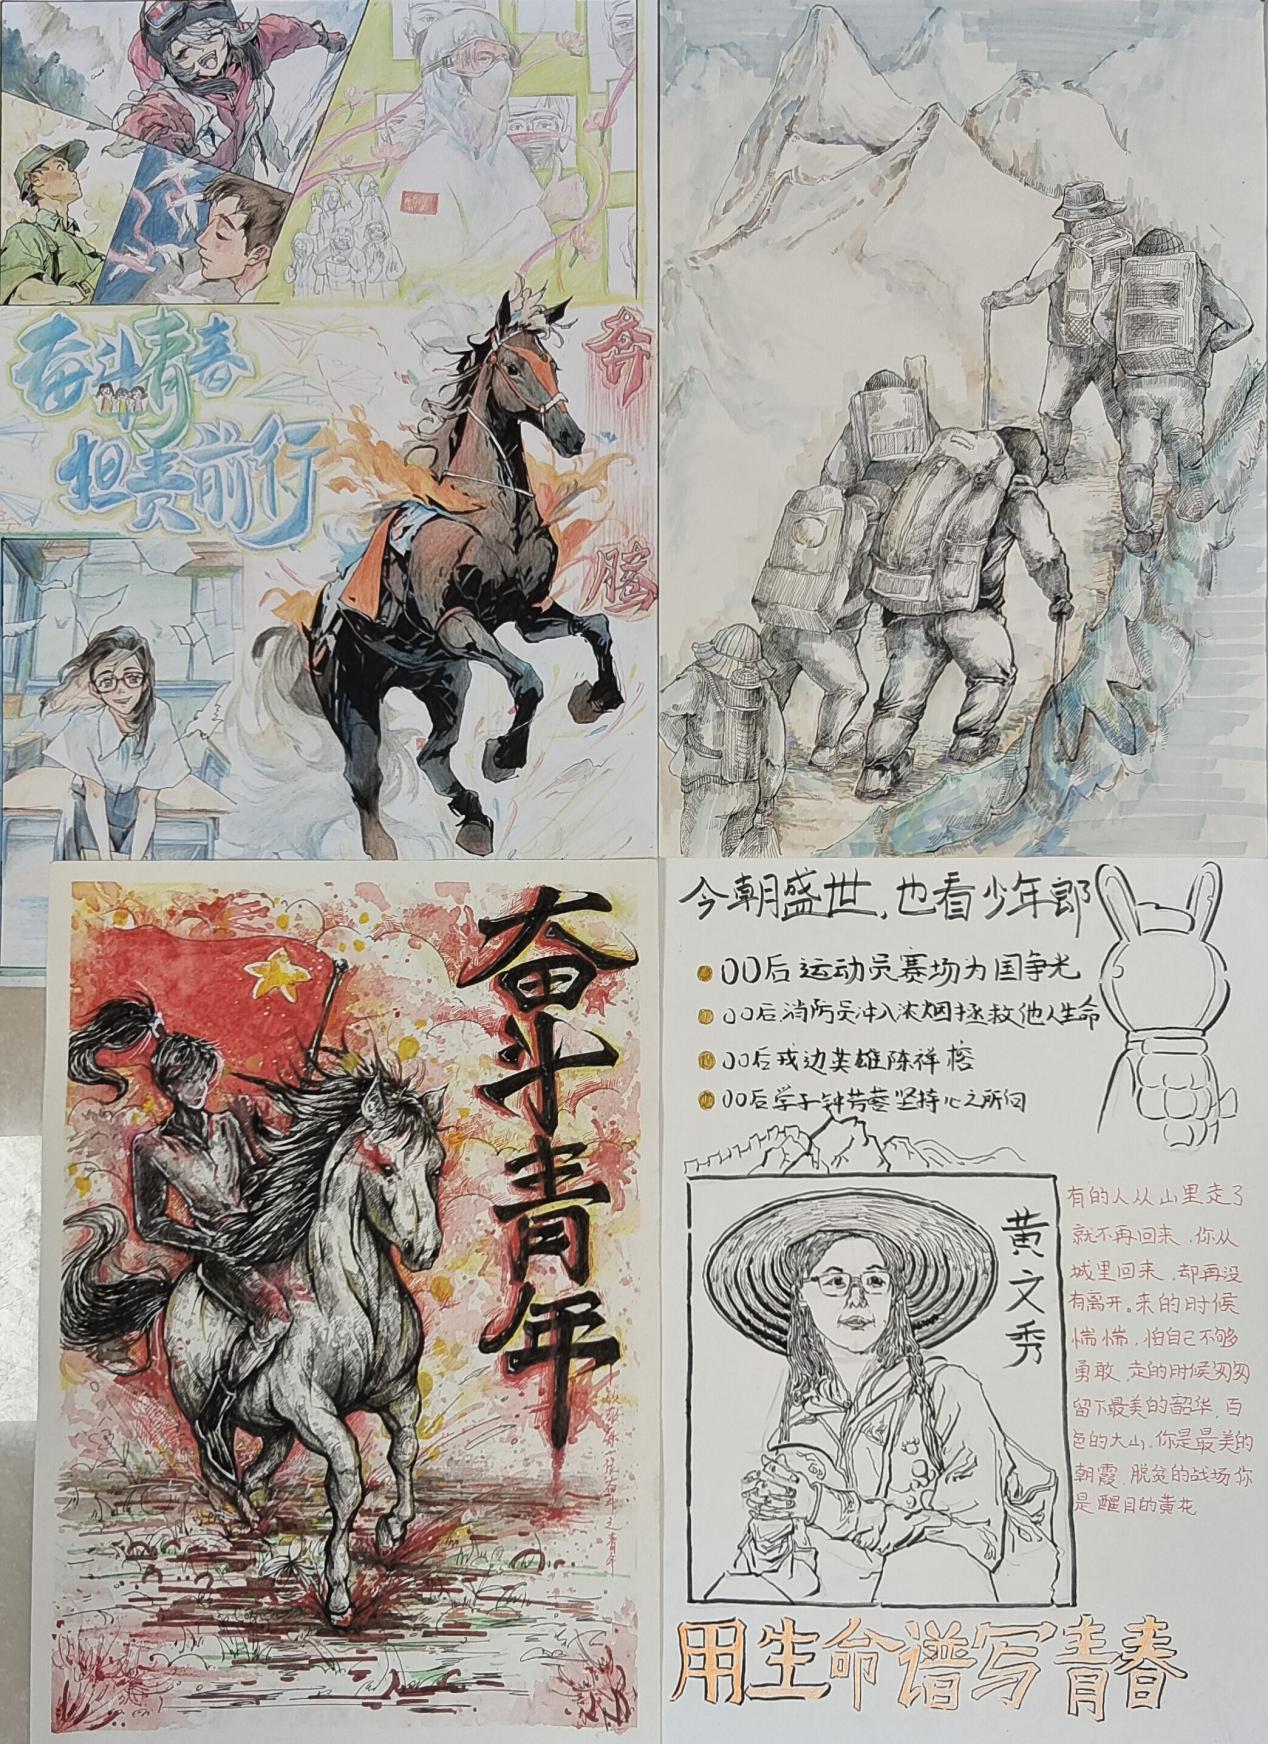 奋斗青春
担责前行
奔腾
奋斗青年
今朝盛世,也看少年郎
00后运动员赛场为国争光
00后消防员冲入浓烟拯救他人生命
00后戍边英雄陈祥榕
00后学子钟芳蓉坚持心之所向
黄文秀
有的人从山里走了
就不再回来,你从
城里回来,却再没
有离开。来的时候
惴惴,怕自己不够
勇敢,走的时候匆匆
留下最美的韶华,百
色的大山,你是最美的
朝霞,脱贫的战场你
是醒目的黄花
用生命谱写青春